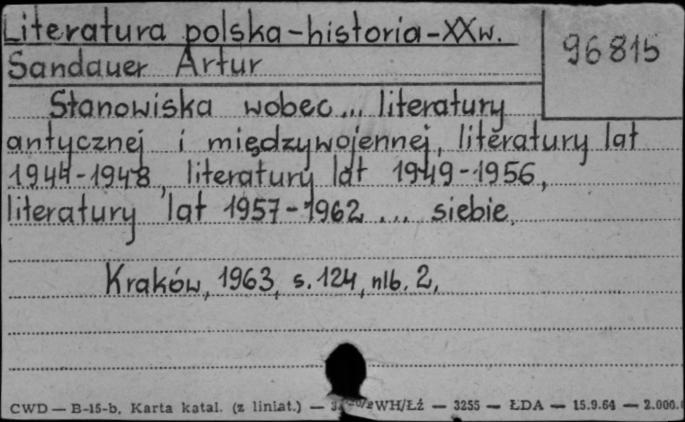 Literatura polska-historia-XXw.
96815
Sandauer Artur
Stanowiska wobec... literatury
antycznej i międzywojennej, literatury lat
1944-1948, literatury lat 1949-1956,
literatury lat 1957-1962 ... siebie.
Kraków, 1963, s. 124, nlb. 2,
CWD — B-15-b. Karta katal. (z liniat.) — WH/Łź — 3255 — ŁDA — 15.9.64 — 2.000.